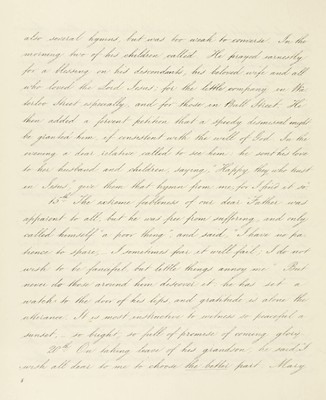 also several hymns, but was too weak to converse. In the
morning two of his children called. He prayed earnestly
for a blessing on his descendants, his beloved wife and all
who loved the Lord Jesus; for the little company in
Street especially, and for those in Street. He
then added a fervent petition that a speedy dismissal might
be granted him, if consistent with the will of God. In the
evening a dear relative called to see him; he sent his love
to her husband and children, saying, "Happy they who trust
in Jesus, give them that hymn from me, for I feel it so."
15th The extreme feebleness of our dear Father was
apparent to all, but he was free from suffering, and only
called himself "a poor thing," and said, "I have no pa-
tience to spare, I sometimes fear it will fail; I do not
wish to be fanciful, but little things annoy me." But
never do those around him discover it; he has set a
watch to the door of his lips, and gratitude is alone the
utterance. It is most instructive to witness so peaceful a
sunset, so bright, so full of promise of coming glory.
20th On taking leave of his grandson he said, "I
wish all dear to me to choose the better part. Mary